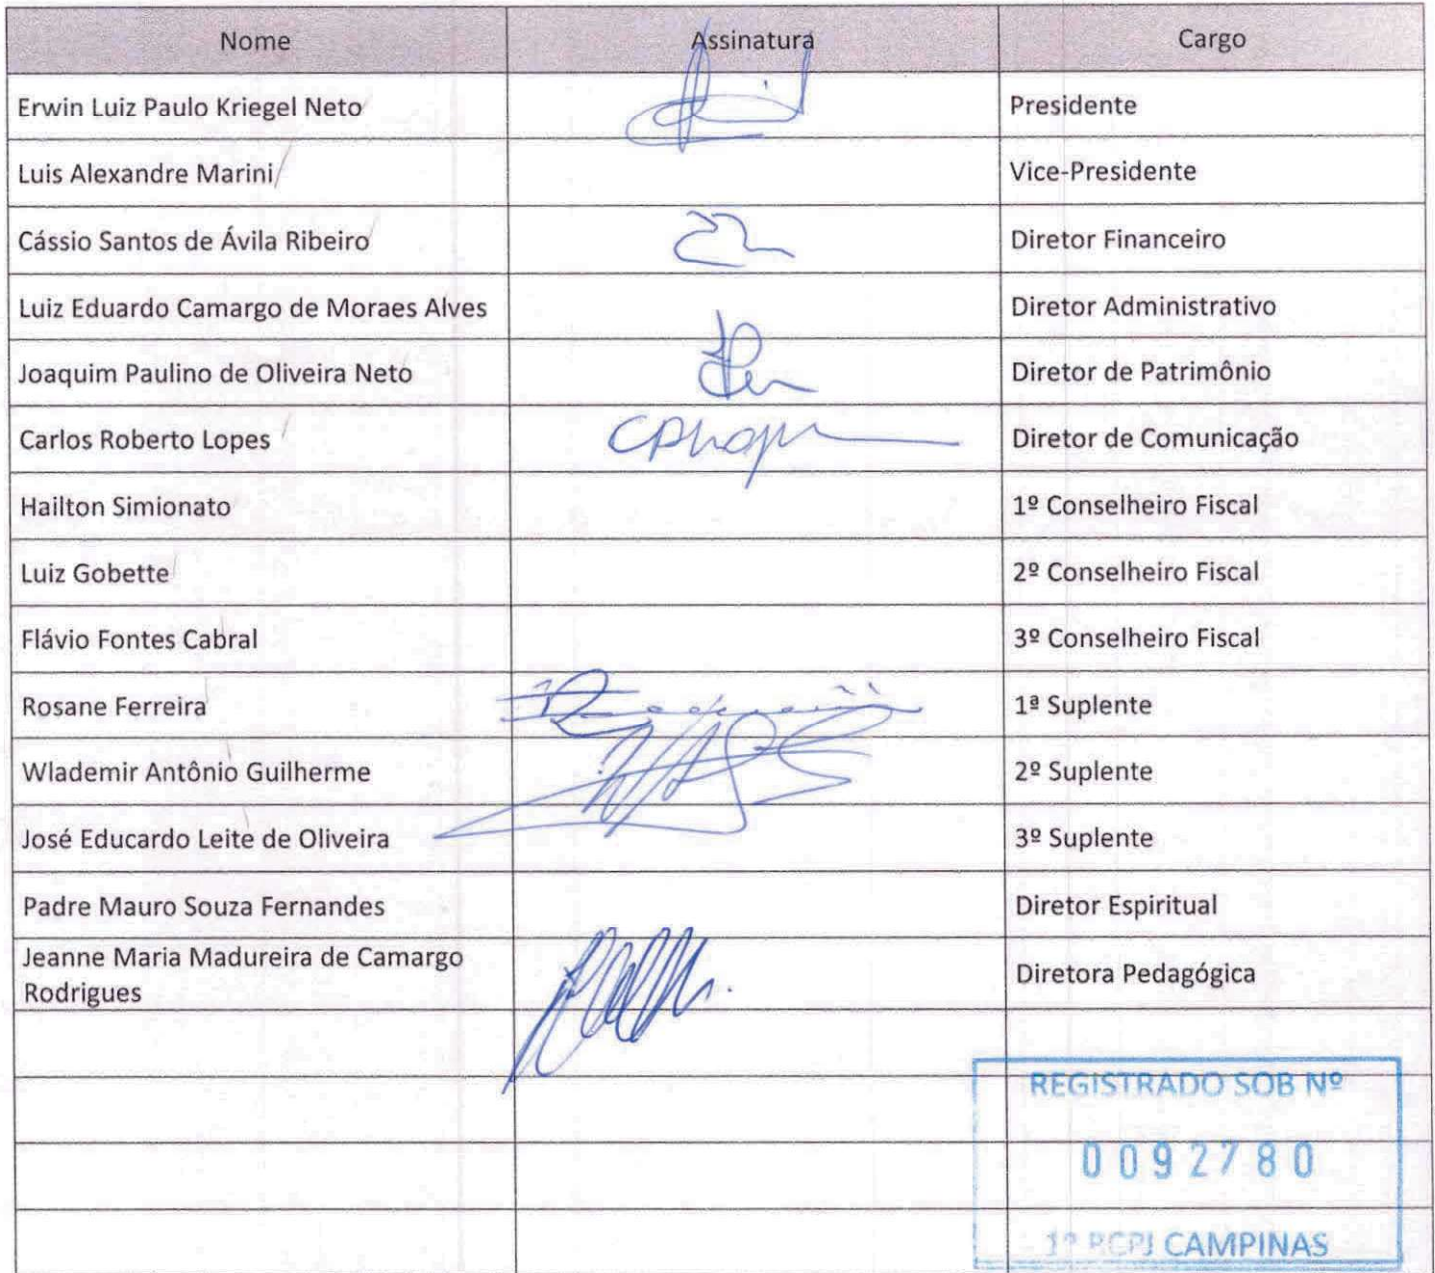 Nome Assinatura Cargo
Erwin Luiz Paulo Kriegel Neto Presidente
Luis Alexandre Marini Vice-Presidente
Cássio Santos de Ávila Ribeiro Diretor Financeiro
Luiz Eduardo Camargo de Moraes Alves Diretor Administrativo
Joaquim Paulino de Oliveira Neto Diretor de Patrimônio
Carlos Roberto Lopes Diretor de Comunicação
Hailton Simionato 1º Conselheiro Fiscal
Luiz Gobette 2º Conselheiro Fiscal
Flávio Fontes Cabral 3º Conselheiro Fiscal
Rosane Ferreira 1ª Suplente
Wlademir Antônio Guilherme 2º Suplente
José Educardo Leite de Oliveira 3º Suplente
Padre Mauro Souza Fernandes Diretor Espiritual
Jeanne Maria Madureira de Camargo
Rodrigues Diretora Pedagógica
REGISTRADO SOB Nº
0092780
1º RCPJ CAMPINAS